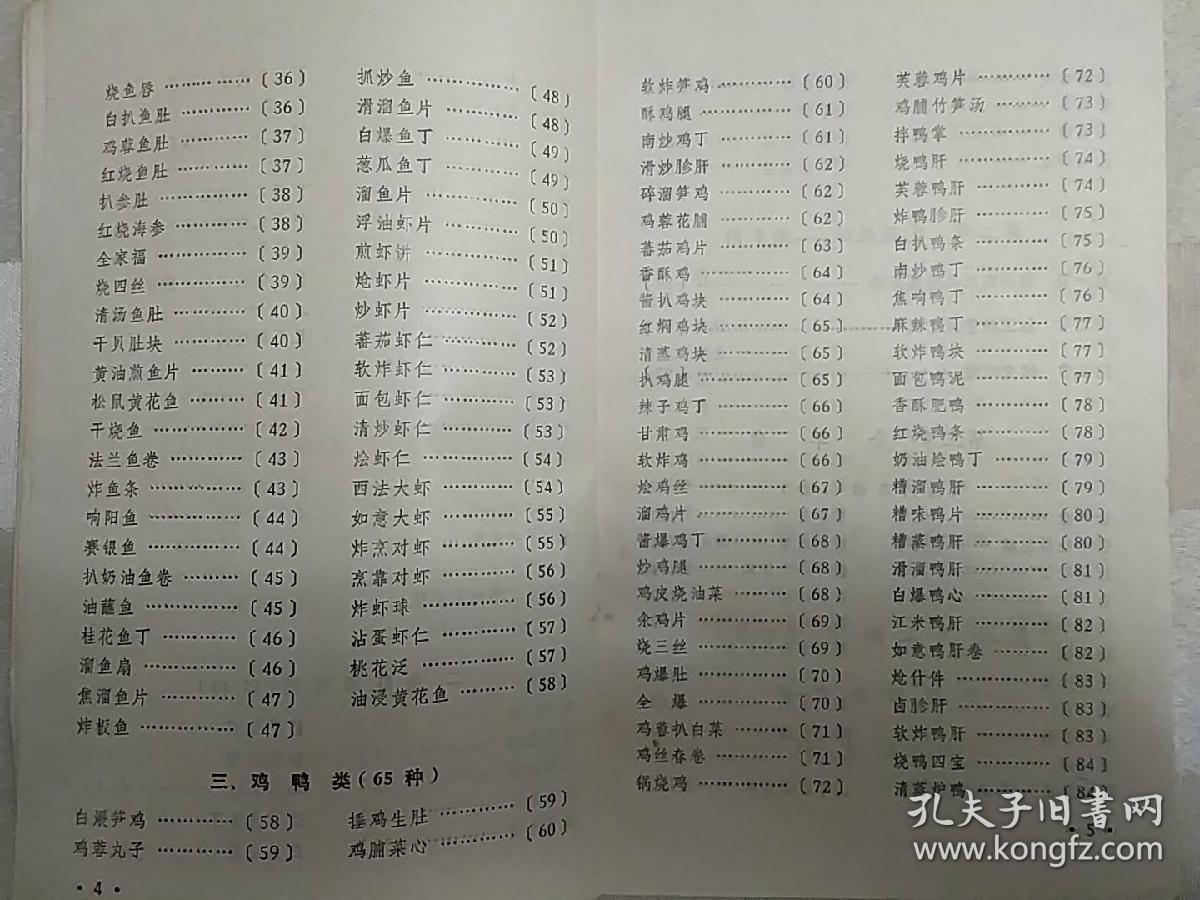 烧鱼唇 …………〔36〕
白扒鱼肚 …………〔36〕
鸡蓉鱼肚 …………〔37〕
红烧鱼肚 …………〔37〕
扒参肚 …………〔38〕
红烧海参 …………〔38〕
全家福 …………〔39〕
烧四丝 …………〔39〕
清汤鱼肚 …………〔40〕
干贝肚块 …………〔40〕
黄油煎鱼片 …………〔41〕
松鼠黄花鱼 …………〔41〕
干烧鱼 …………〔42〕
法兰鱼卷 …………〔43〕
炸鱼条 …………〔43〕
响阳鱼 …………〔44〕
赛银鱼 …………〔44〕
扒奶油鱼卷 …………〔45〕
油蘸鱼 …………〔45〕
桂花鱼丁 …………〔46〕
溜鱼扇 …………〔46〕
焦溜鱼片 …………〔47〕
炸板鱼 …………〔47〕
抓炒鱼 …………〔48〕
滑溜鱼片 …………〔48〕
白爆鱼丁 …………〔49〕
葱瓜鱼丁 …………〔49〕
溜鱼片 …………〔50〕
浮油虾片 …………〔50〕
煎虾饼 …………〔51〕
炝虾片 …………〔51〕
炒虾片 …………〔52〕
蕃茄虾仁 …………〔52〕
软炸虾仁 …………〔53〕
面包虾仁 …………〔53〕
清炒虾仁 …………〔53〕
烩虾仁 …………〔54〕
西法大虾 …………〔54〕
如意大虾 …………〔55〕
炸烹对虾 …………〔55〕
烹靠对虾 …………〔56〕
炸虾球 …………〔56〕
沾蛋虾仁 …………〔57〕
桃花泛 …………〔57〕
油浸黄花鱼 …………〔58〕
三、鸡 鸭 类(65 种)
白煨笋鸡 …………〔58〕
鸡蓉丸子 …………〔59〕
捶鸡生肚 …………〔59〕
鸡脯菜心 …………〔60〕
· 4 ·
软炸笋鸡 …………〔60〕
酥鸡腿 …………〔61〕
南炒鸡丁 …………〔61〕
滑炒胗肝 …………〔62〕
碎溜笋鸡 …………〔62〕
鸡蓉花脯 …………〔62〕
蕃茄鸡片 …………〔63〕
香酥鸡 …………〔64〕
酱扒鸡块 …………〔64〕
红焖鸡块 …………〔65〕
清蒸鸡块 …………〔65〕
扒鸡腿 …………〔65〕
辣子鸡丁 …………〔66〕
甘肃鸡 …………〔66〕
软炸鸡 …………〔66〕
烩鸡丝 …………〔67〕
溜鸡片 …………〔67〕
酱爆鸡丁 …………〔68〕
炒鸡腿 …………〔68〕
鸡皮烧油菜 …………〔68〕
氽鸡片 …………〔69〕
烧三丝 …………〔69〕
鸡爆肚 …………〔70〕
全 爆 …………〔70〕
鸡蓉扒白菜 …………〔71〕
鸡丝春卷 …………〔71〕
锅烧鸡 …………〔72〕
芙蓉鸡片 …………〔72〕
鸡脯竹笋汤 …………〔73〕
拌鸭掌 …………〔73〕
烧鸭肝 …………〔74〕
芙蓉鸭肝 …………〔74〕
炸鸭胗肝 …………〔75〕
白扒鸭条 …………〔75〕
南炒鸭丁 …………〔76〕
焦响鸭丁 …………〔76〕
麻辣鸭丁 …………〔77〕
软炸鸭块 …………〔77〕
面包鸭泥 …………〔77〕
香酥肥鸭 …………〔78〕
红烧鸭条 …………〔78〕
奶油烩鸭丁 …………〔79〕
糟溜鸭肝 …………〔79〕
糟味鸭片 …………〔80〕
糟蒸鸭肝 …………〔80〕
滑溜鸭肝 …………〔81〕
白爆鸭心 …………〔81〕
江米鸭肝 …………〔82〕
如意鸭肝卷 …………〔82〕
炝什件 …………〔83〕
卤胗肝 …………〔83〕
软炸鸭肝 …………〔83〕
烧鸭四宝 …………〔84〕
清蒸炉鸭 …………〔84〕
· 5 ·
孔夫子旧書网
www.kongfz.com